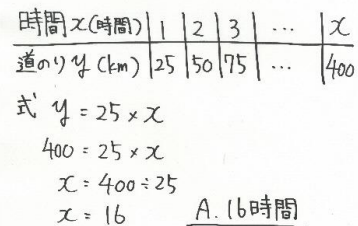 時間x(時間) 1 2 3 … x
道のりy(km) 25 50 75 … 400
式 y = 25 × x
400 = 25 × x
x = 400 ÷ 25
x = 16 A. 16時間